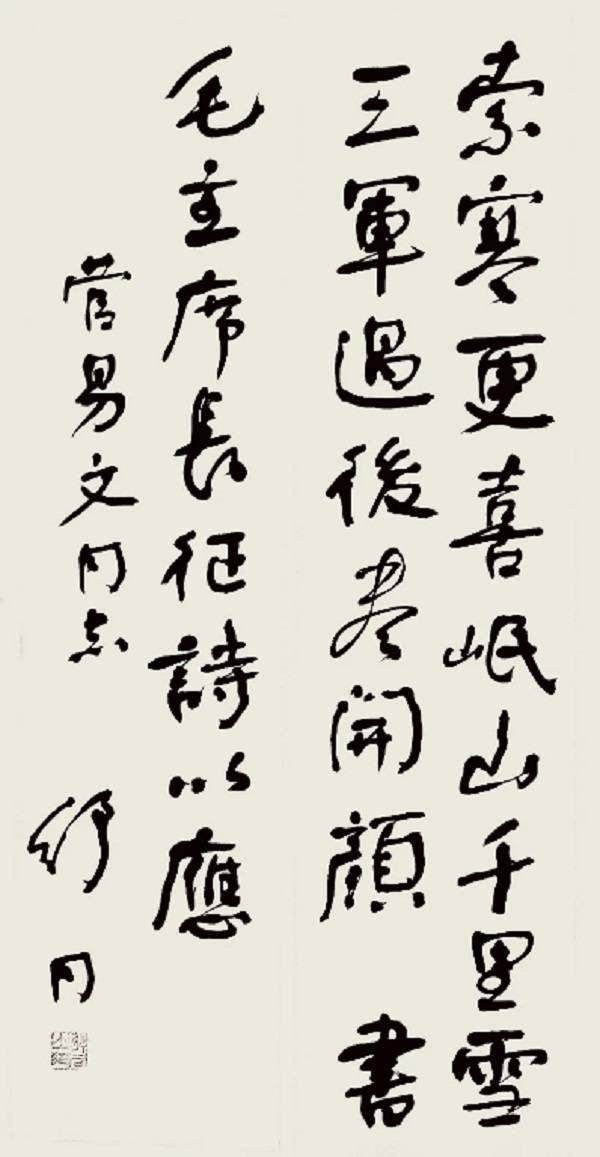 索寒更喜岷山千里雪
三軍過後尽開顔 書
毛主席長征詩以應
营易文同志
舒同